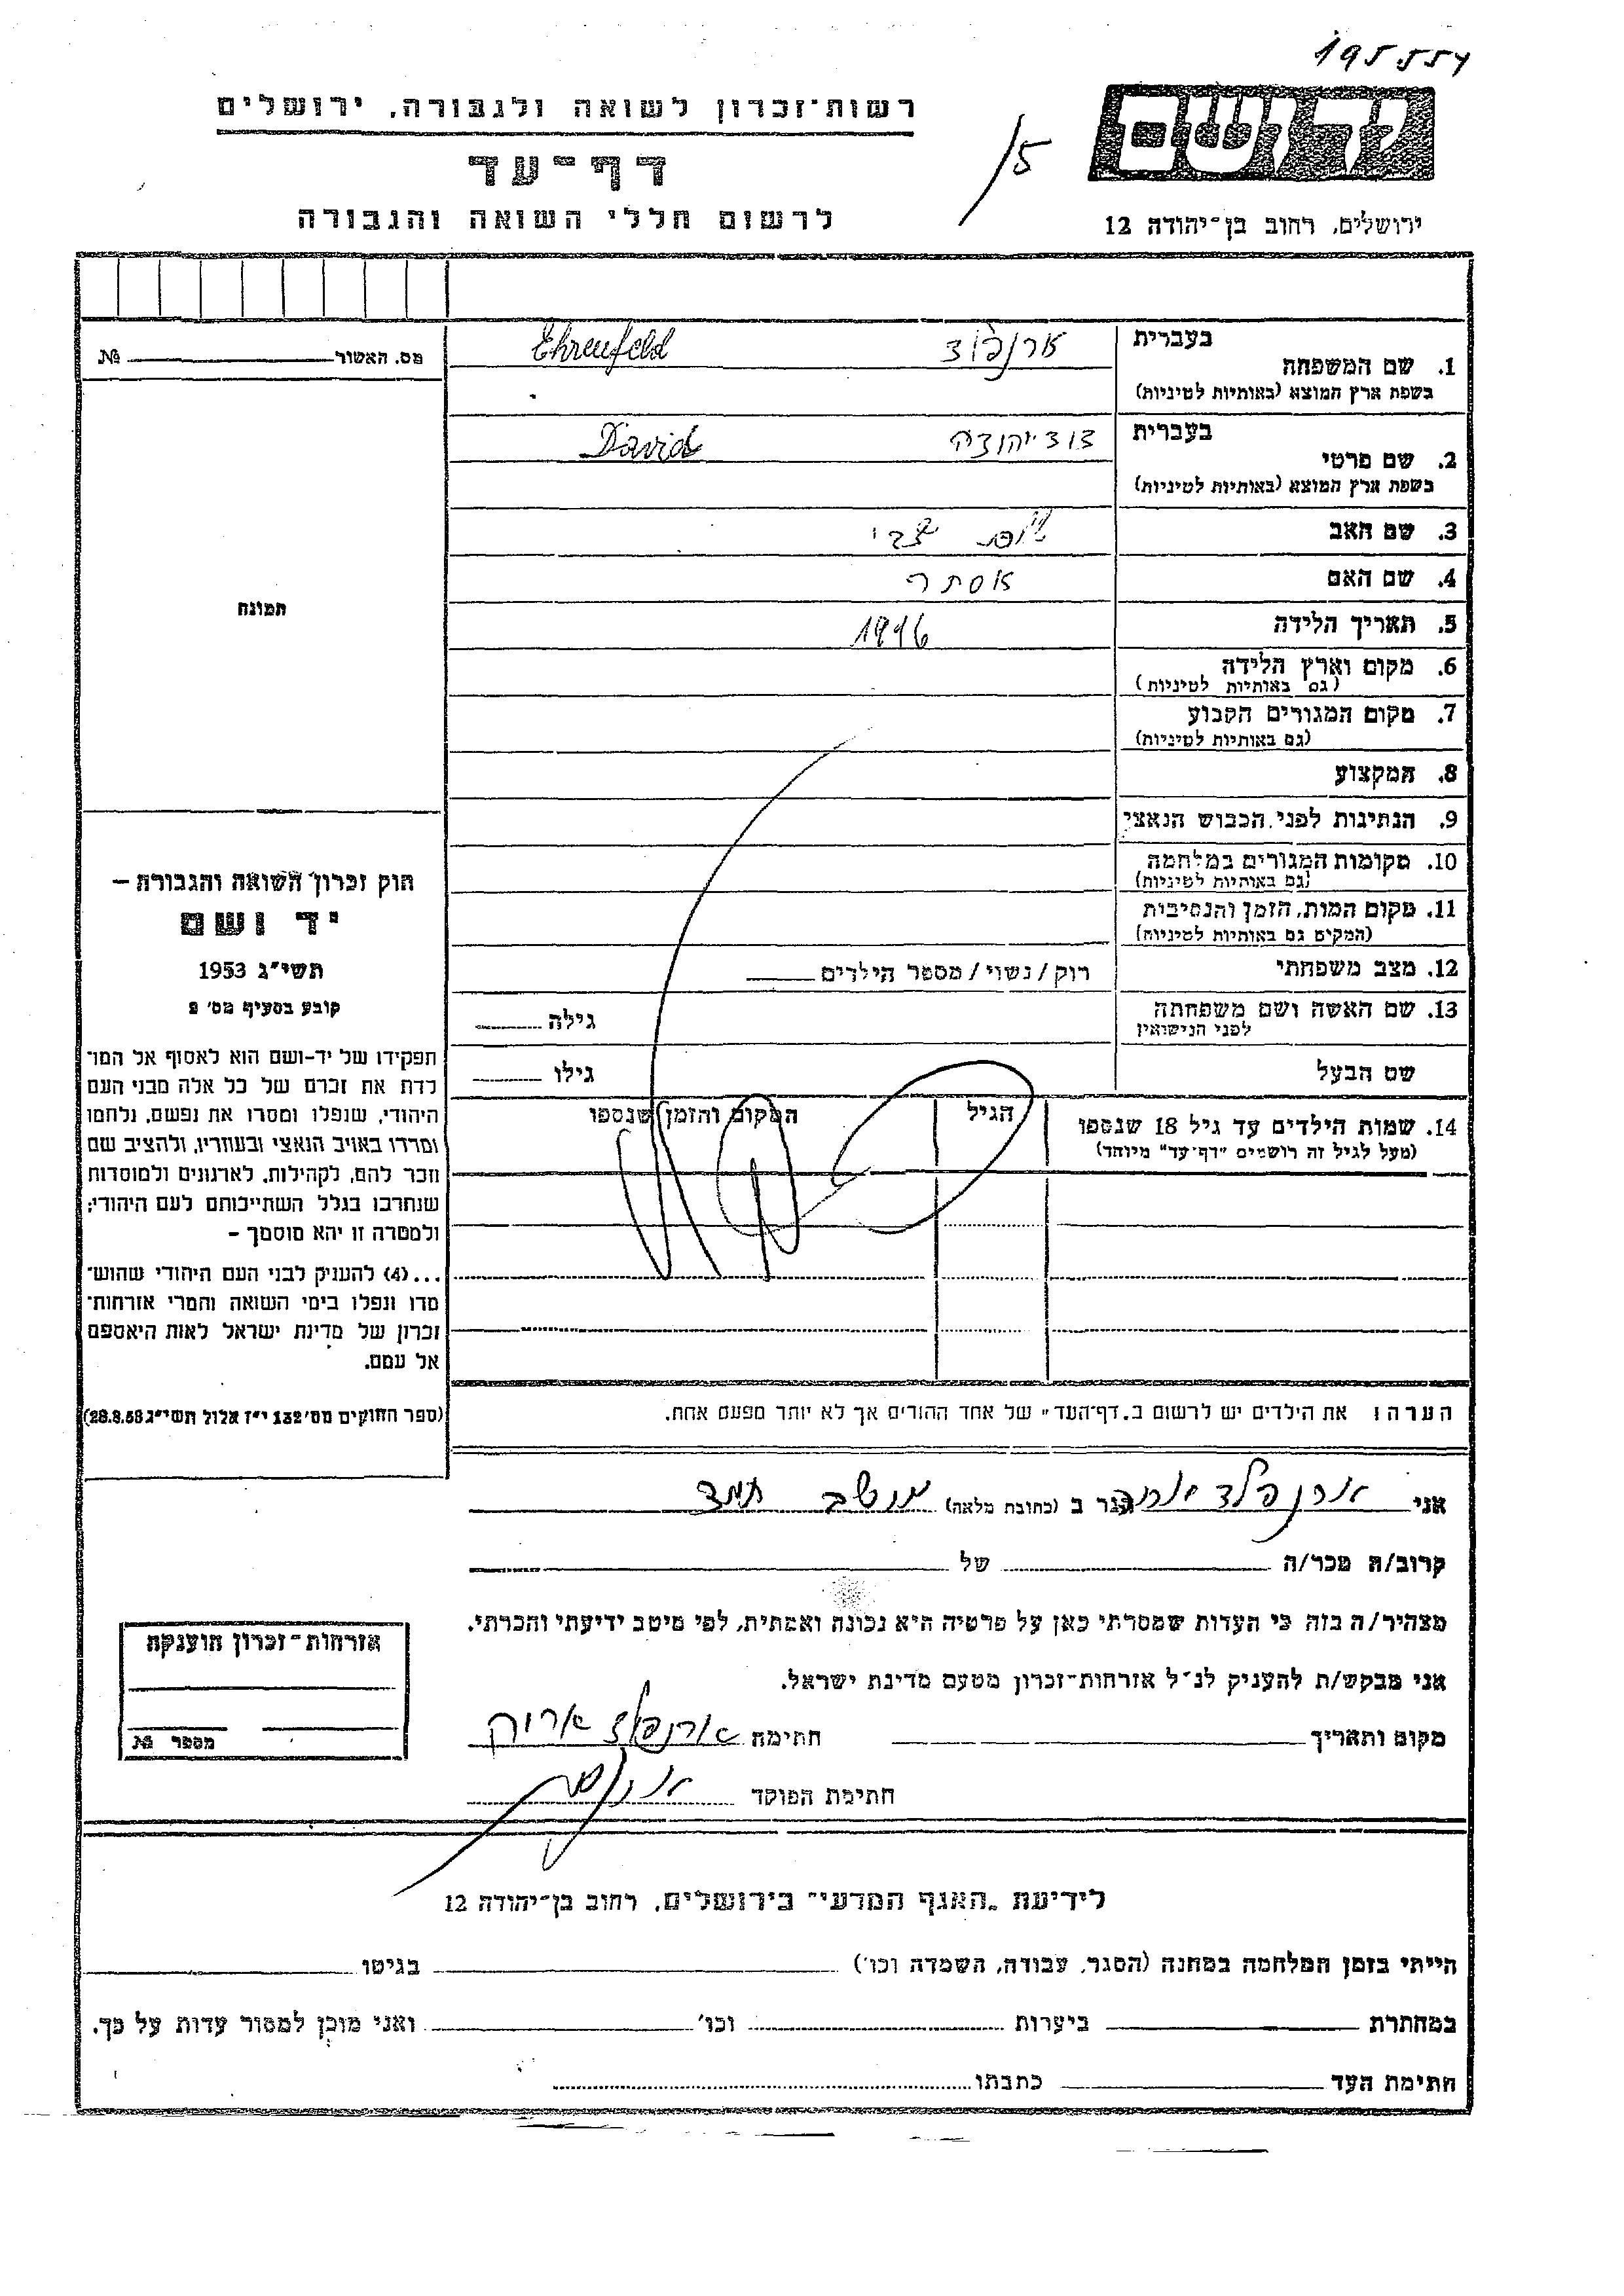 195554
רשות-זכרון לשואה ולגבורה, ירושלים
ד ף - ע ד
לרשום חללי השואה והגבורה
15
יד ושם
ירושלים, רחוב בן-יהודה 12
בעברית
1. שם המשפחה
בשפת ארץ המוצא (באותיות לטיניות)
ארנפלד Ehrenfeld
בעברית
2. שם פרטי
בשפת ארץ המוצא (באותיות לטיניות)
דוד יהודה David
3. שם האב יוסף צבי
4. שם האם אסתר
5. תאריך הלידה 1916
6. מקום וארץ הלידה
(גם באותיות לטיניות)
7. מקום המגורים הקבוע
(גם באותיות לטיניות)
8. המקצוע
9. הנתינות לפני הכבוש הנאצי
10. מקומות המגורים במלחמה
(גם באותיות לטיניות)
11. מקום המות, הזמן והנסיבות
(המקום גם באותיות לטיניות)
12. מצב משפחתי רוק/נשוי/מספר הילדים
13. שם האשה ושם משפחתה
לפני הנישואין
גילה
שם הבעל גילו
14. שמות הילדים עד גיל 18 שנספו
(מעל לגיל זה רושמים "דף-עד" מיוחד)
הגיל
המקום והזמן שנספו
הערה: את הילדים יש לרשום ב„דף-העד" של אחד ההורים אך לא יותר מפעם אחת.
מס. האשור №
תמונה
חוק זכרון השואה והגבורה –
יד ושם
תשי"ג 1953
קובע בסעיף מס' 2
תפקידו של יד-ושם הוא לאסוף אל המו־
לדת את זכרם של כל אלה מבני העם
היהודי, שנפלו ומסרו את נפשם, נלחמו
ומרדו באויב הנאצי ובעוזריו, ולהציב שם
וזכר להם, לקהילות, לארגונים ולמוסדות
שנחרבו בגלל השתייכותם לעם היהודי;
ולמטרה זו יהא מוסמך –
...(4) להעניק לבני העם היהודי שהוש־
מדו ונפלו בימי השואה והמרי אזרחות־
זכרון של מדינת ישראל לאות היאספם
אל עמם.
(ספר החוקים מס' 132 י"ז אלול תשי"ג 28.8.53)
אני ארנפלד הגר ב (כתובת מלאה) מושב תמד
קרוב/ה מכר/ה של
מצהיר/ה בזה כי העדות שמסרתי כאן על פרטיה היא נכונה ואמתית, לפי מיטב ידיעתי והכרתי.
אני מבקש/ת להעניק לנ"ל אזרחות-זכרון מטעם מדינת ישראל.
מקום ותאריך חתימה ארנפלד
חתימת הפוקד
אזרחות-זכרון הוענקה
מספר №
לידיעת „האגף המדעי" בירושלים, רחוב בן-יהודה 12
הייתי בזמן המלחמה במחנה (הסגר, עבודה, השמדה וכו') בגיטו
במחתרת ביערות וכו' ואני מוכן למסור עדות על כך.
חתימת העד כתבתו